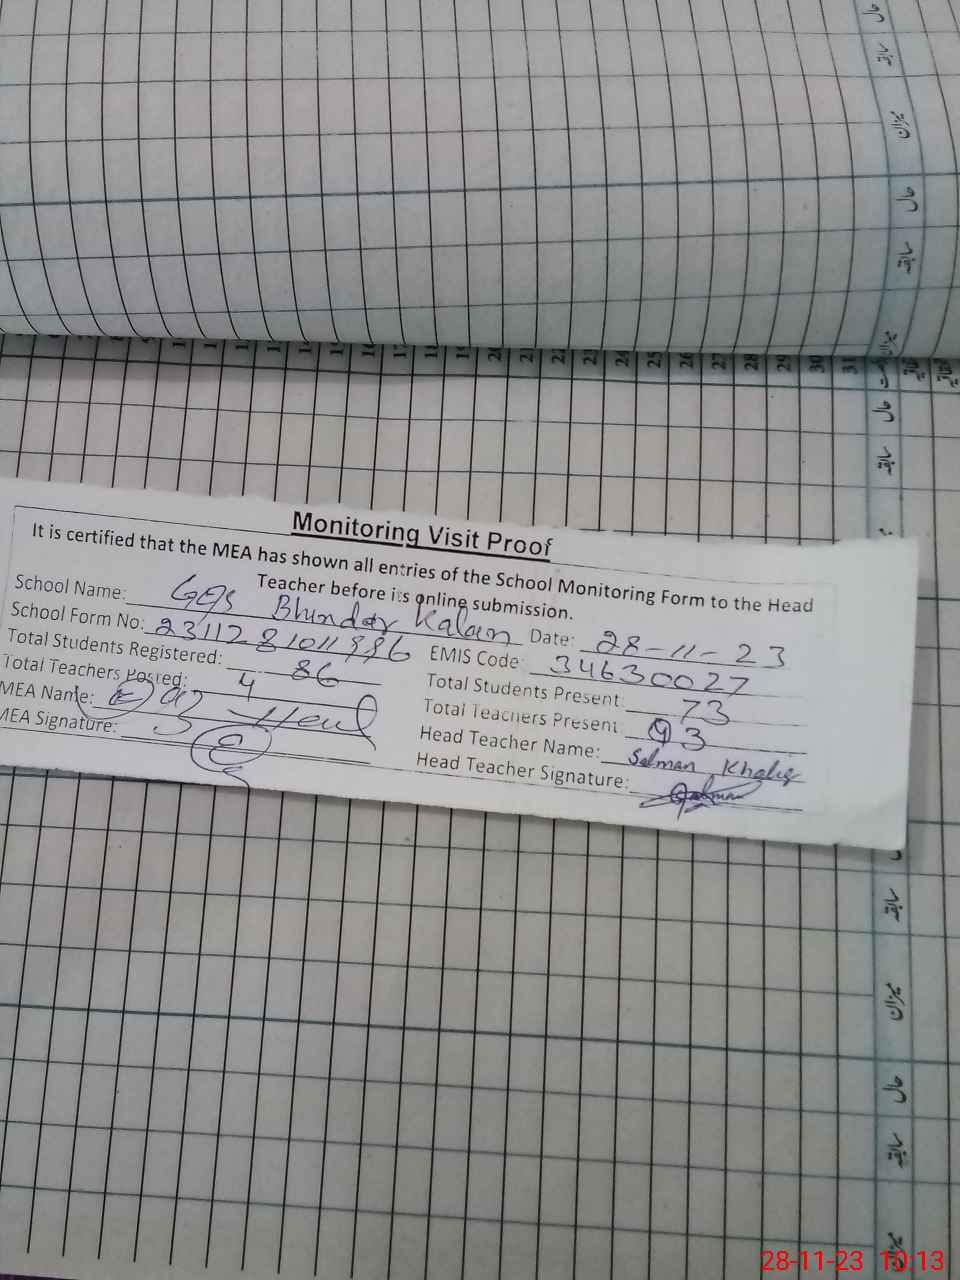 حال
سابقہ
میزان
حال
سابقہ
میزان
20 21 22 23 24 25 26 27 28 29 30 31
حال
سابقہ
Monitoring Visit Proof
It is certified that the MEA has shown all entries of the School Monitoring Form to the Head
Teacher before its online submission.
School Name: Bhindar Kalan Date: 28-11-23
School Form No: EMIS Code: 34630027
Total Students Registered: 86 Total Students Present: 73
Total Teachers Posted: 4 Total Teachers Present: 3
MEA Name: Head Teacher Name: Salman Khaliq
MEA Signature: Head Teacher Signature:
سابقہ
میزان
حال
سابقہ
میزان
28-11-23 10:13